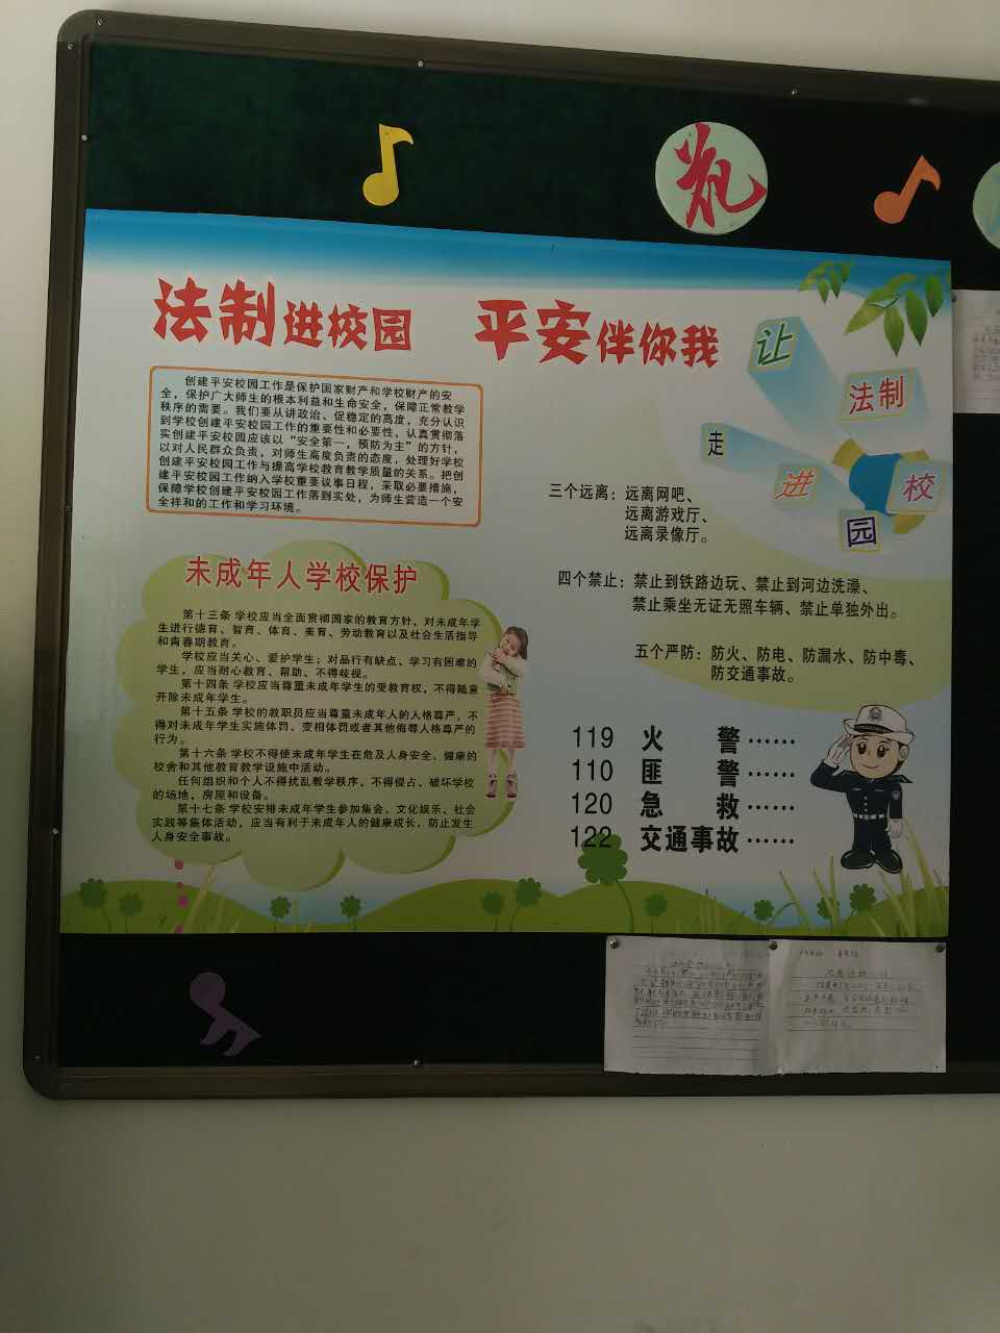 礼
法制进校园 平安伴你我
让
法制
走
进
校
园
创建平安校园工作是保护国家财产和学校财产的安
全，保护广大师生的根本利益和生命安全，保障正常教学
秩序的需要。我们要从讲政治、促稳定的高度，充分认识
到学校创建平安校园工作的重要性和必要性，认真贯彻落
实创建平安校园应该以“安全第一，预防为主”的方针，
以对人民群众负责，对师生高度负责的态度，处理好学校
创建平安校园工作与提高学校教育教学质量的关系。把创
建平安校园工作纳入学校重要议事日程，采取必要措施，
保障学校创建平安校园工作落到实处，为师生营造一个安
全祥和的工作和学习环境。
未成年人学校保护
第十三条 学校应当全面贯彻国家的教育方针，对未成年学
生进行德育、智育、体育、美育、劳动教育以及社会生活指导
和青春期教育。
学校应当关心、爱护学生；对品行有缺点、学习有困难的
学生，应当耐心教育、帮助、不得歧视。
第十四条 学校应当尊重未成年学生的受教育权，不得随意
开除未成年学生。
第十五条 学校的教职员应当尊重未成年人的人格尊严，不
得对未成年学生实施体罚、变相体罚或者其他侮辱人格尊严的
行为。
第十六条 学校不得使未成年学生在危及人身安全、健康的
校舍和其他教育教学设施中活动。
任何组织和个人不得扰乱教学秩序，不得侵占、破坏学校
的场地，房屋和设备。
第十七条 学校安排未成年学生参加集会、文化娱乐、社会
实践等集体活动，应当有利于未成年人的健康成长，防止发生
人身安全事故。
三个远离：远离网吧、
远离游戏厅、
远离录像厅。
四个禁止：禁止到铁路边玩、禁止到河边洗澡、
禁止乘坐无证无照车辆、禁止单独外出。
五个严防：防火、防电、防漏水、防中毒、
防交通事故。
119 火 警……
110 匪 警……
120 急 救……
122 交通事故……